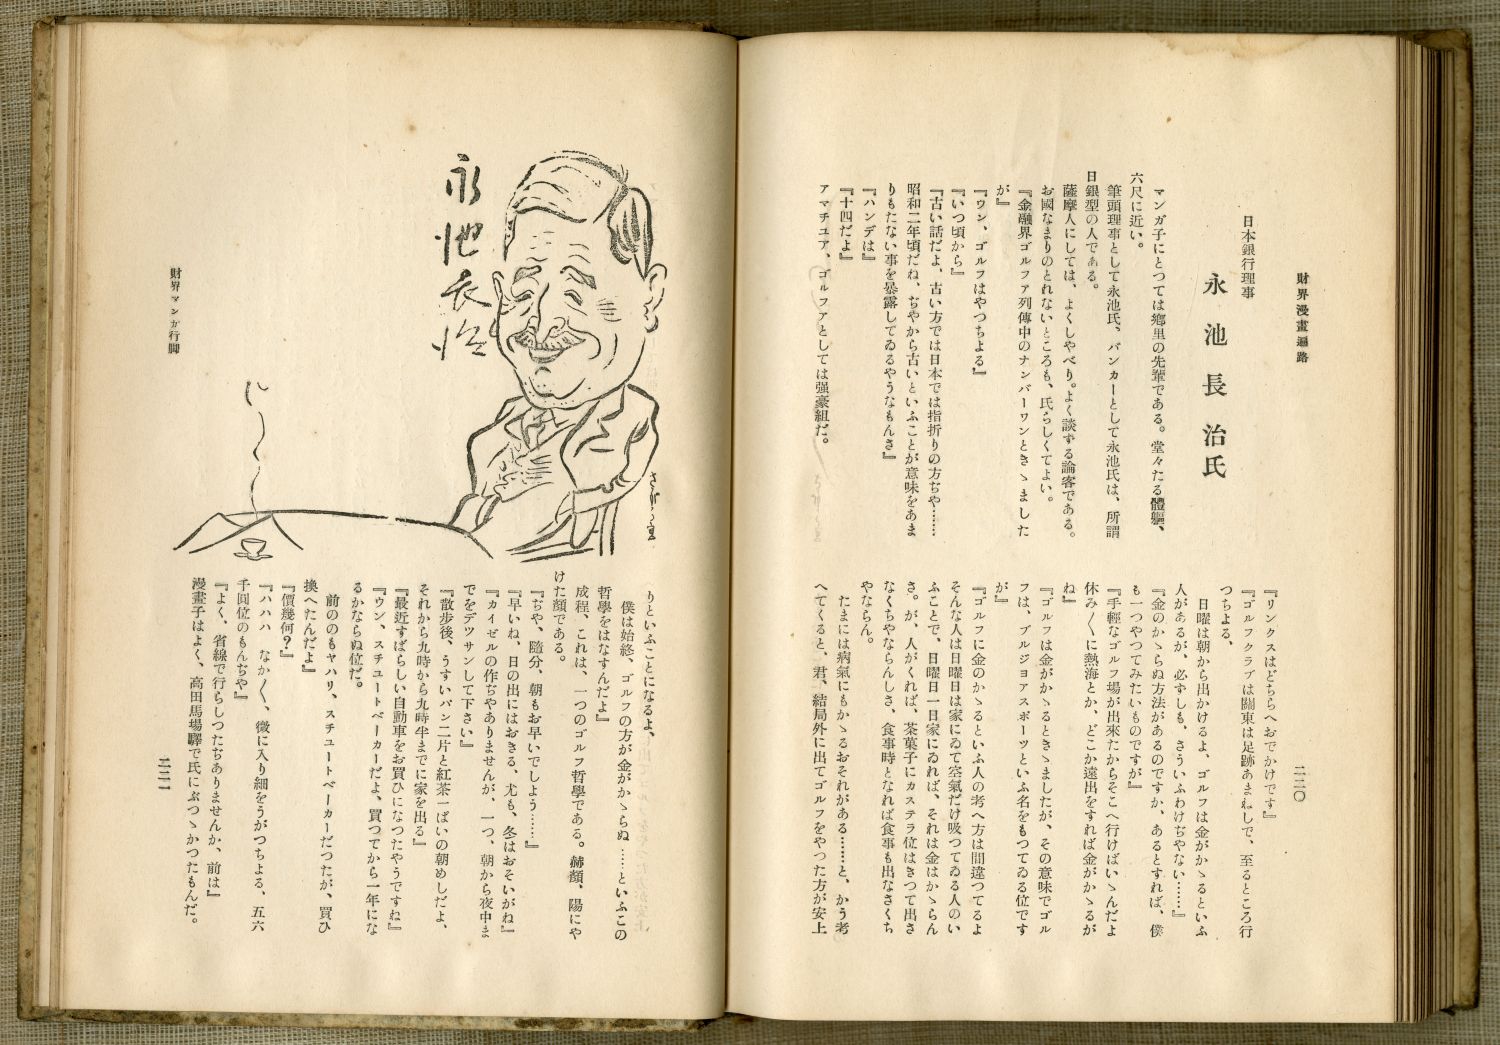 財界漫畫遍路
日本銀行理事
永池長治氏
マンガ子にとつては鄕里の先輩である。堂々たる體軀、
六尺に近い。
筆頭理事として永池氏、バンカーとして永池氏は、所謂
日銀型の人である。
薩摩人にしては、よくしやべり。よく談ずる論客である。
お國なまりのとれないところも、氏らしくてよい。
『金融界ゴルファ列傳中のナンバーワンときゝました
が』
『ウン、ゴルフはやつちよる』
『いつ頃から』
『古い話だよ、古い方では日本では指折りの方ぢや……
昭和二年頃だね、ぢやから古いといふことが意味をあま
りもたない事を暴露してゐるやうなもんさ』
『ハンデは』
『十四だよ』
アマチユア、ゴルフアとしては强豪組だ。
『リンクスはどちらへおでかけです』
『ゴルフクラブは關東は足跡あまねしで、至るところ行
つちよる、
日曜は朝から出かけるよ、ゴルフは金がかゝるといふ
人があるが、必ずしも、さういふわけぢやない……』
『金のかゝらぬ方法があるのですか、あるとすれば、僕
も一つやつてみたいものですが』
『手輕なゴルフ場が出來たからそこへ行けばいゝんだよ
休み〱に熱海とか、どこか遠出をすれば金がかゝるが
ね』
『ゴルフは金がかゝるときゝましたが、その意味でゴル
フは、ブルジョアスポーツといふ名をもつてゐる位です
が』
『ゴルフに金のかゝるといふ人の考へ方は間違つてるよ
そんな人は日曜日は家にゐて空氣だけ吸つてゐる人のい
ふことで、日曜日一日家にゐれば、それは金はかゝらん
さ。が、人がくれば、茶菓子にカステラ位はきつて出さ
なくちやならんしさ、食事時となれば食事も出なさくち
やならん。
たまには病氣にもかゝるおそれがある……と、かう考
へてくると、君、結局外に出てゴルフをやつた方が安上
二二〇
永池長治
りといふことになるよ、
僕は始終、ゴルフの方が金がかゝらぬ……といふこの
哲學をはなすんだよ』
成程、これは、一つのゴルフ哲學である。赫顏、陽にや
けた顏である。
『ぢや、隨分、朝もお早いでしよう……』
『早いね、日の出にはおきる、尤も、冬はおそいがね』
『カイゼルの作ぢやありませんが、一つ、朝から夜中ま
でをデツサンして下さい』
『散步後、うすいパン二片と紅茶一ぱいの朝めしだよ、
それから九時から九時半までに家を出る』
『最近すばらしい自動車をお買ひになつたやうですね』
『ウン、スチユートベーカーだよ、買つてから一年にな
るかならぬ位だ。
前ののもヤハリ、スチユートベーカーだつたが、買ひ
換へたんだよ』
『價幾何？』
『ハハハ なか〱、微に入り細をうがつちよる、五六
千圓位のもんぢや』
『よく、省線で行らしつたぢありませんか、前は』
漫畫子はよく、高田馬場驛で氏にぶつゝかつたもんだ。
財界マンガ行脚
二二一